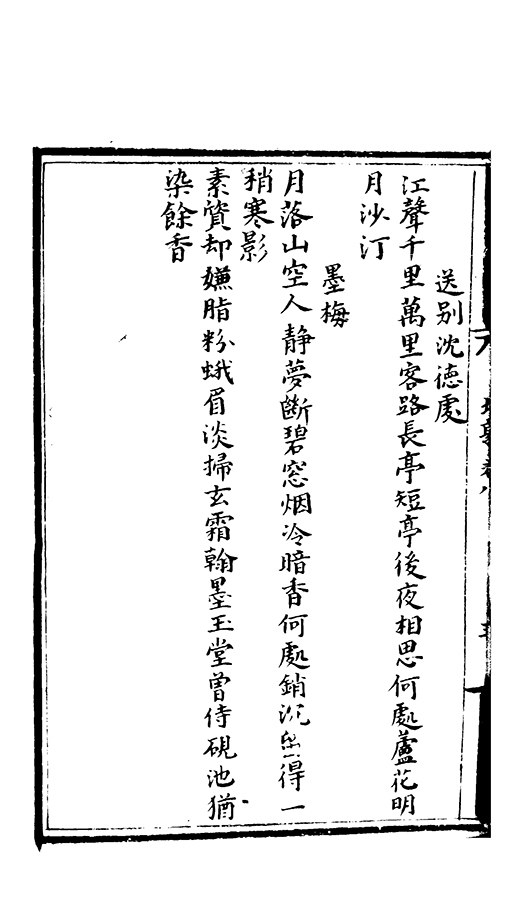 送别沈徳處
江聲千里萬里客路長亭短亭後夜相思何處蘆花明
月沙汀
墨梅
月落山空人静夢斷碧窓烟冷暗香何處銷沉留得一
稍寒影
素質却嫌脂粉蛾眉淡掃玄霜翰墨玉堂曾侍硯池猶
染餘香